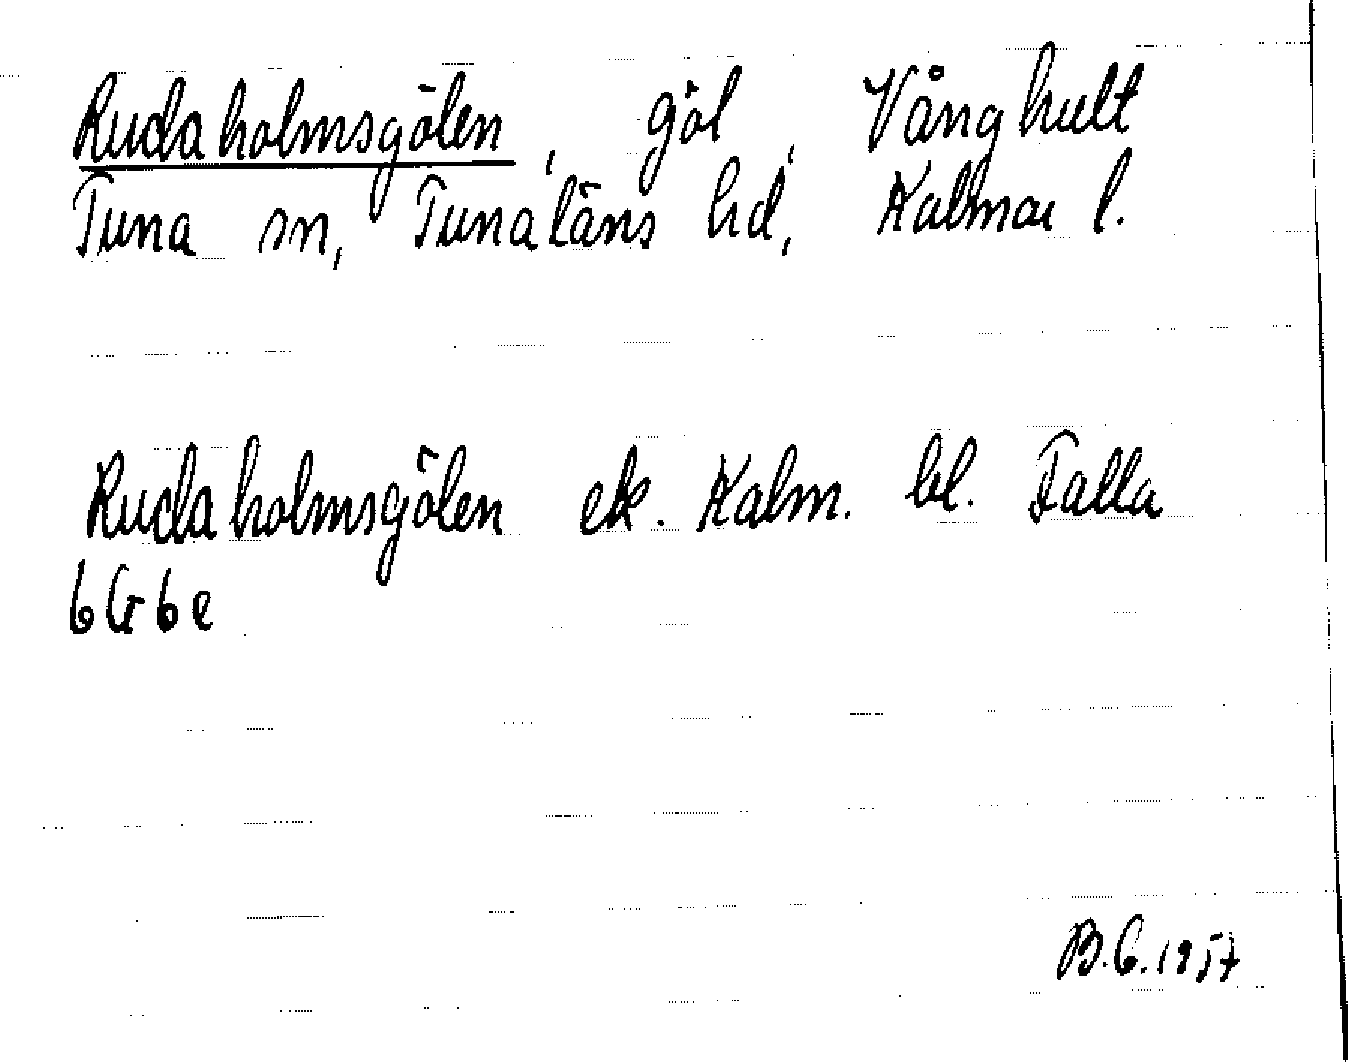 Rudaholmsgölen, göl, Vånghult
Tuna sn, Tunaläns hd, Kalmar l.
Rudaholmsgölen ek. Kalm. bl. Falla
6G6e
B.G. 1957